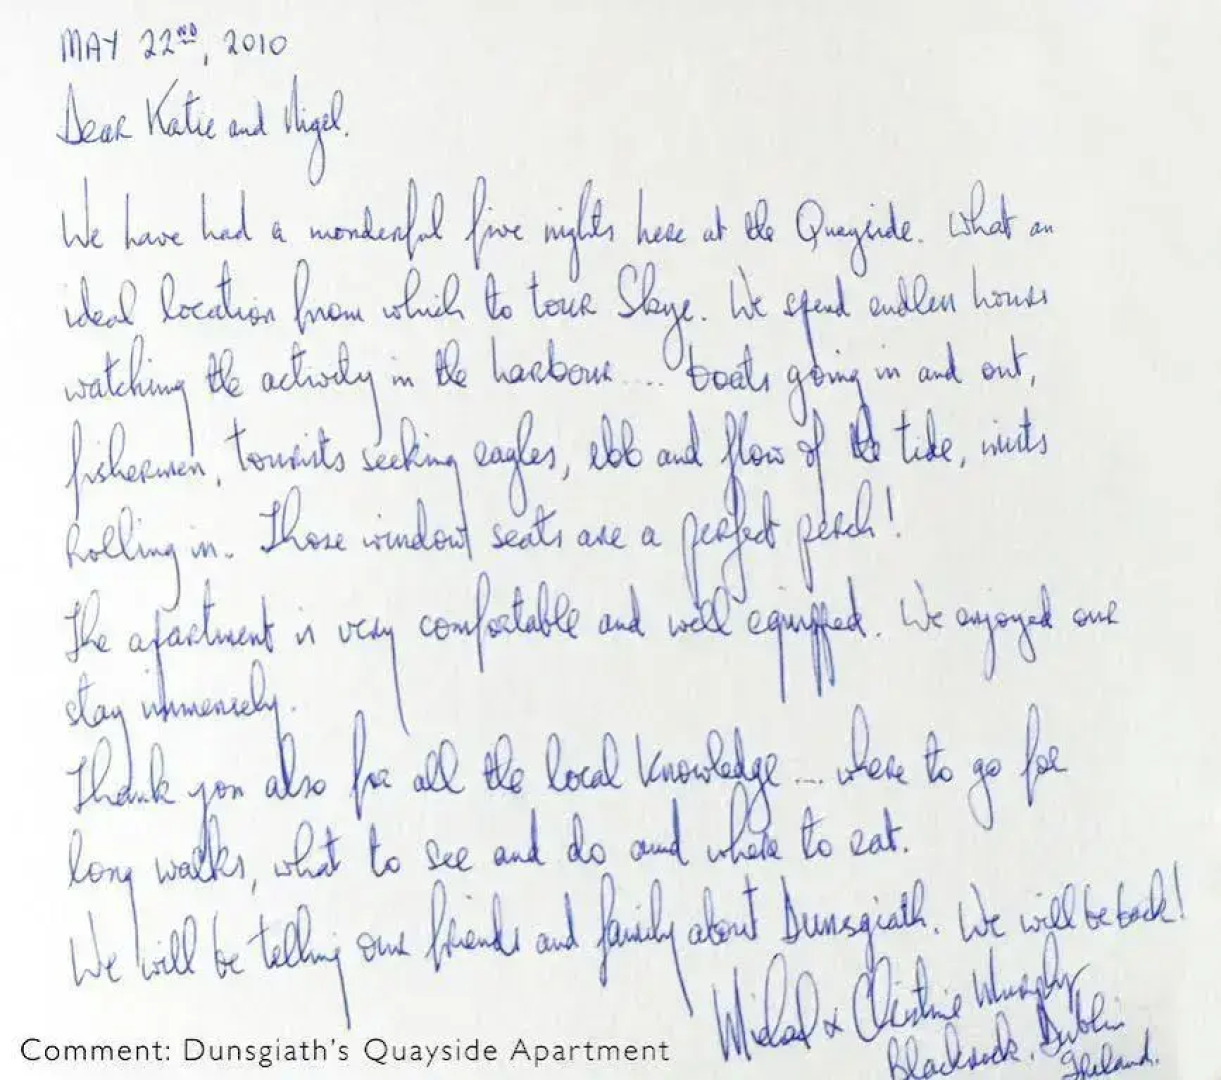 MAY 22ND, 2010
Dear Katie and Nigel.
We have had a wonderful five nights here at the Quayside. What an
ideal location from which to tour Skye. We spend endless hours
watching the activity in the harbour.... boats going in and out,
fishermen, tourists seeking eagles, ebb and flow of the tide, mists
rolling in. Those window seats are a perfect perch!
The apartment is very comfortable and well equipped. We enjoyed our
stay immensely.
Thank you also for all the local knowledge.... where to go for
long walks, what to see and do and where to eat.
We will be telling our friends and family about Dunsgiath. We will be back!
Michael & Christine Murphy
Blackrock, Dublin
Ireland.
Comment: Dunsgiath's Quayside Apartment